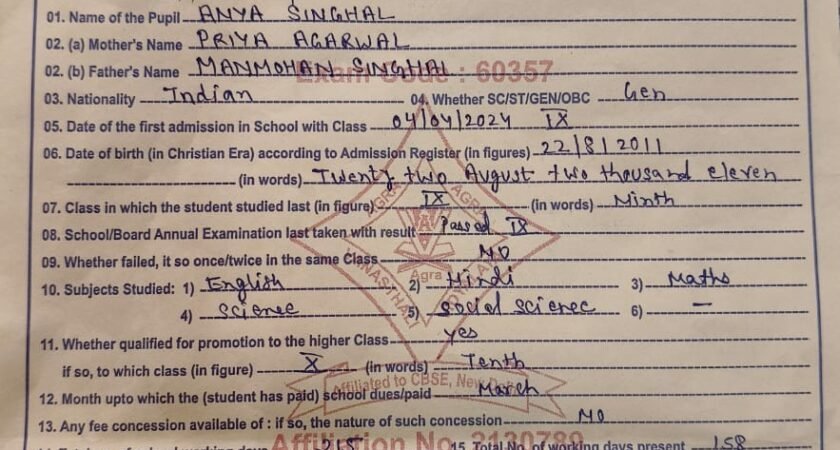 01. Name of the Pupil ANYA SINGHAL
02. (a) Mother's Name PRIYA AGARWAL
02. (b) Father's Name MANMOHAN SINGHAL
Exam Code : 60357
03. Nationality Indian 04. Whether SC/ST/GEN/OBC Gen
05. Date of the first admission in School with Class 04/04/2024 IX
06. Date of birth (in Christian Era) according to Admission Register (in figures) 22/8/2011
(in words) Twenty two August two thousand eleven
AGRA AGRA
07. Class in which the student studied last (in figure) IX (in words) Ninth
08. School/Board Annual Examination last taken with result Passed IX
09. Whether failed, it so once/twice in the same Class NO
VANASTHALI VIDYALAYA
Agra
10. Subjects Studied: 1) English 2) Hindi 3) Maths
4) Science 5) Social Science 6) —
11. Whether qualified for promotion to the higher Class yes
if so, to which class (in figure) X (in words) Tenth
Affiliated to CBSE, New Delhi
12. Month upto which the (student has paid) school dues/paid March
13. Any fee concession available of : if so, the nature of such concession NO
Affiliation No. 2130789
215 15. Total No. of working days present 158